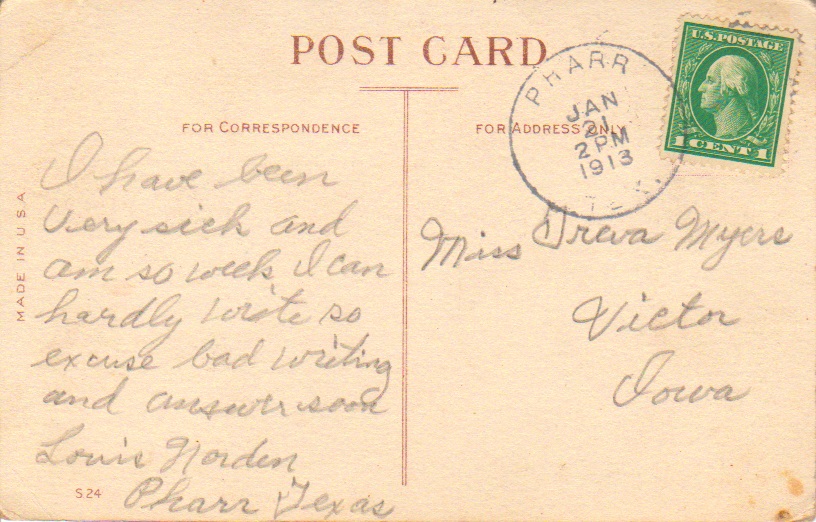 POST CARD
U.S. POSTAGE
1 CENT 1
PHARR
JAN
21
2 PM
1913
TEX.
FOR CORRESPONDENCE
FOR ADDRESS ONLY
MADE IN U.S.A
I have been
very sick and
am so week I can
hardly write so
excuse bad writing
and answer soon
Louis Norden
Pharr Texas
Miss Treva Myers
Victor
Iowa
S24